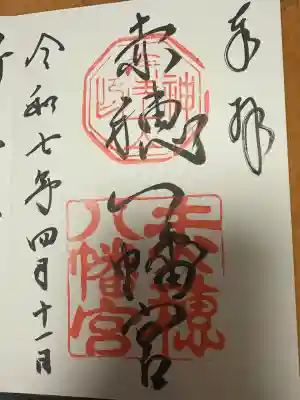 奉拝
赤穂八幡宮
赤穂
八幡宮
令和七年四月十一日